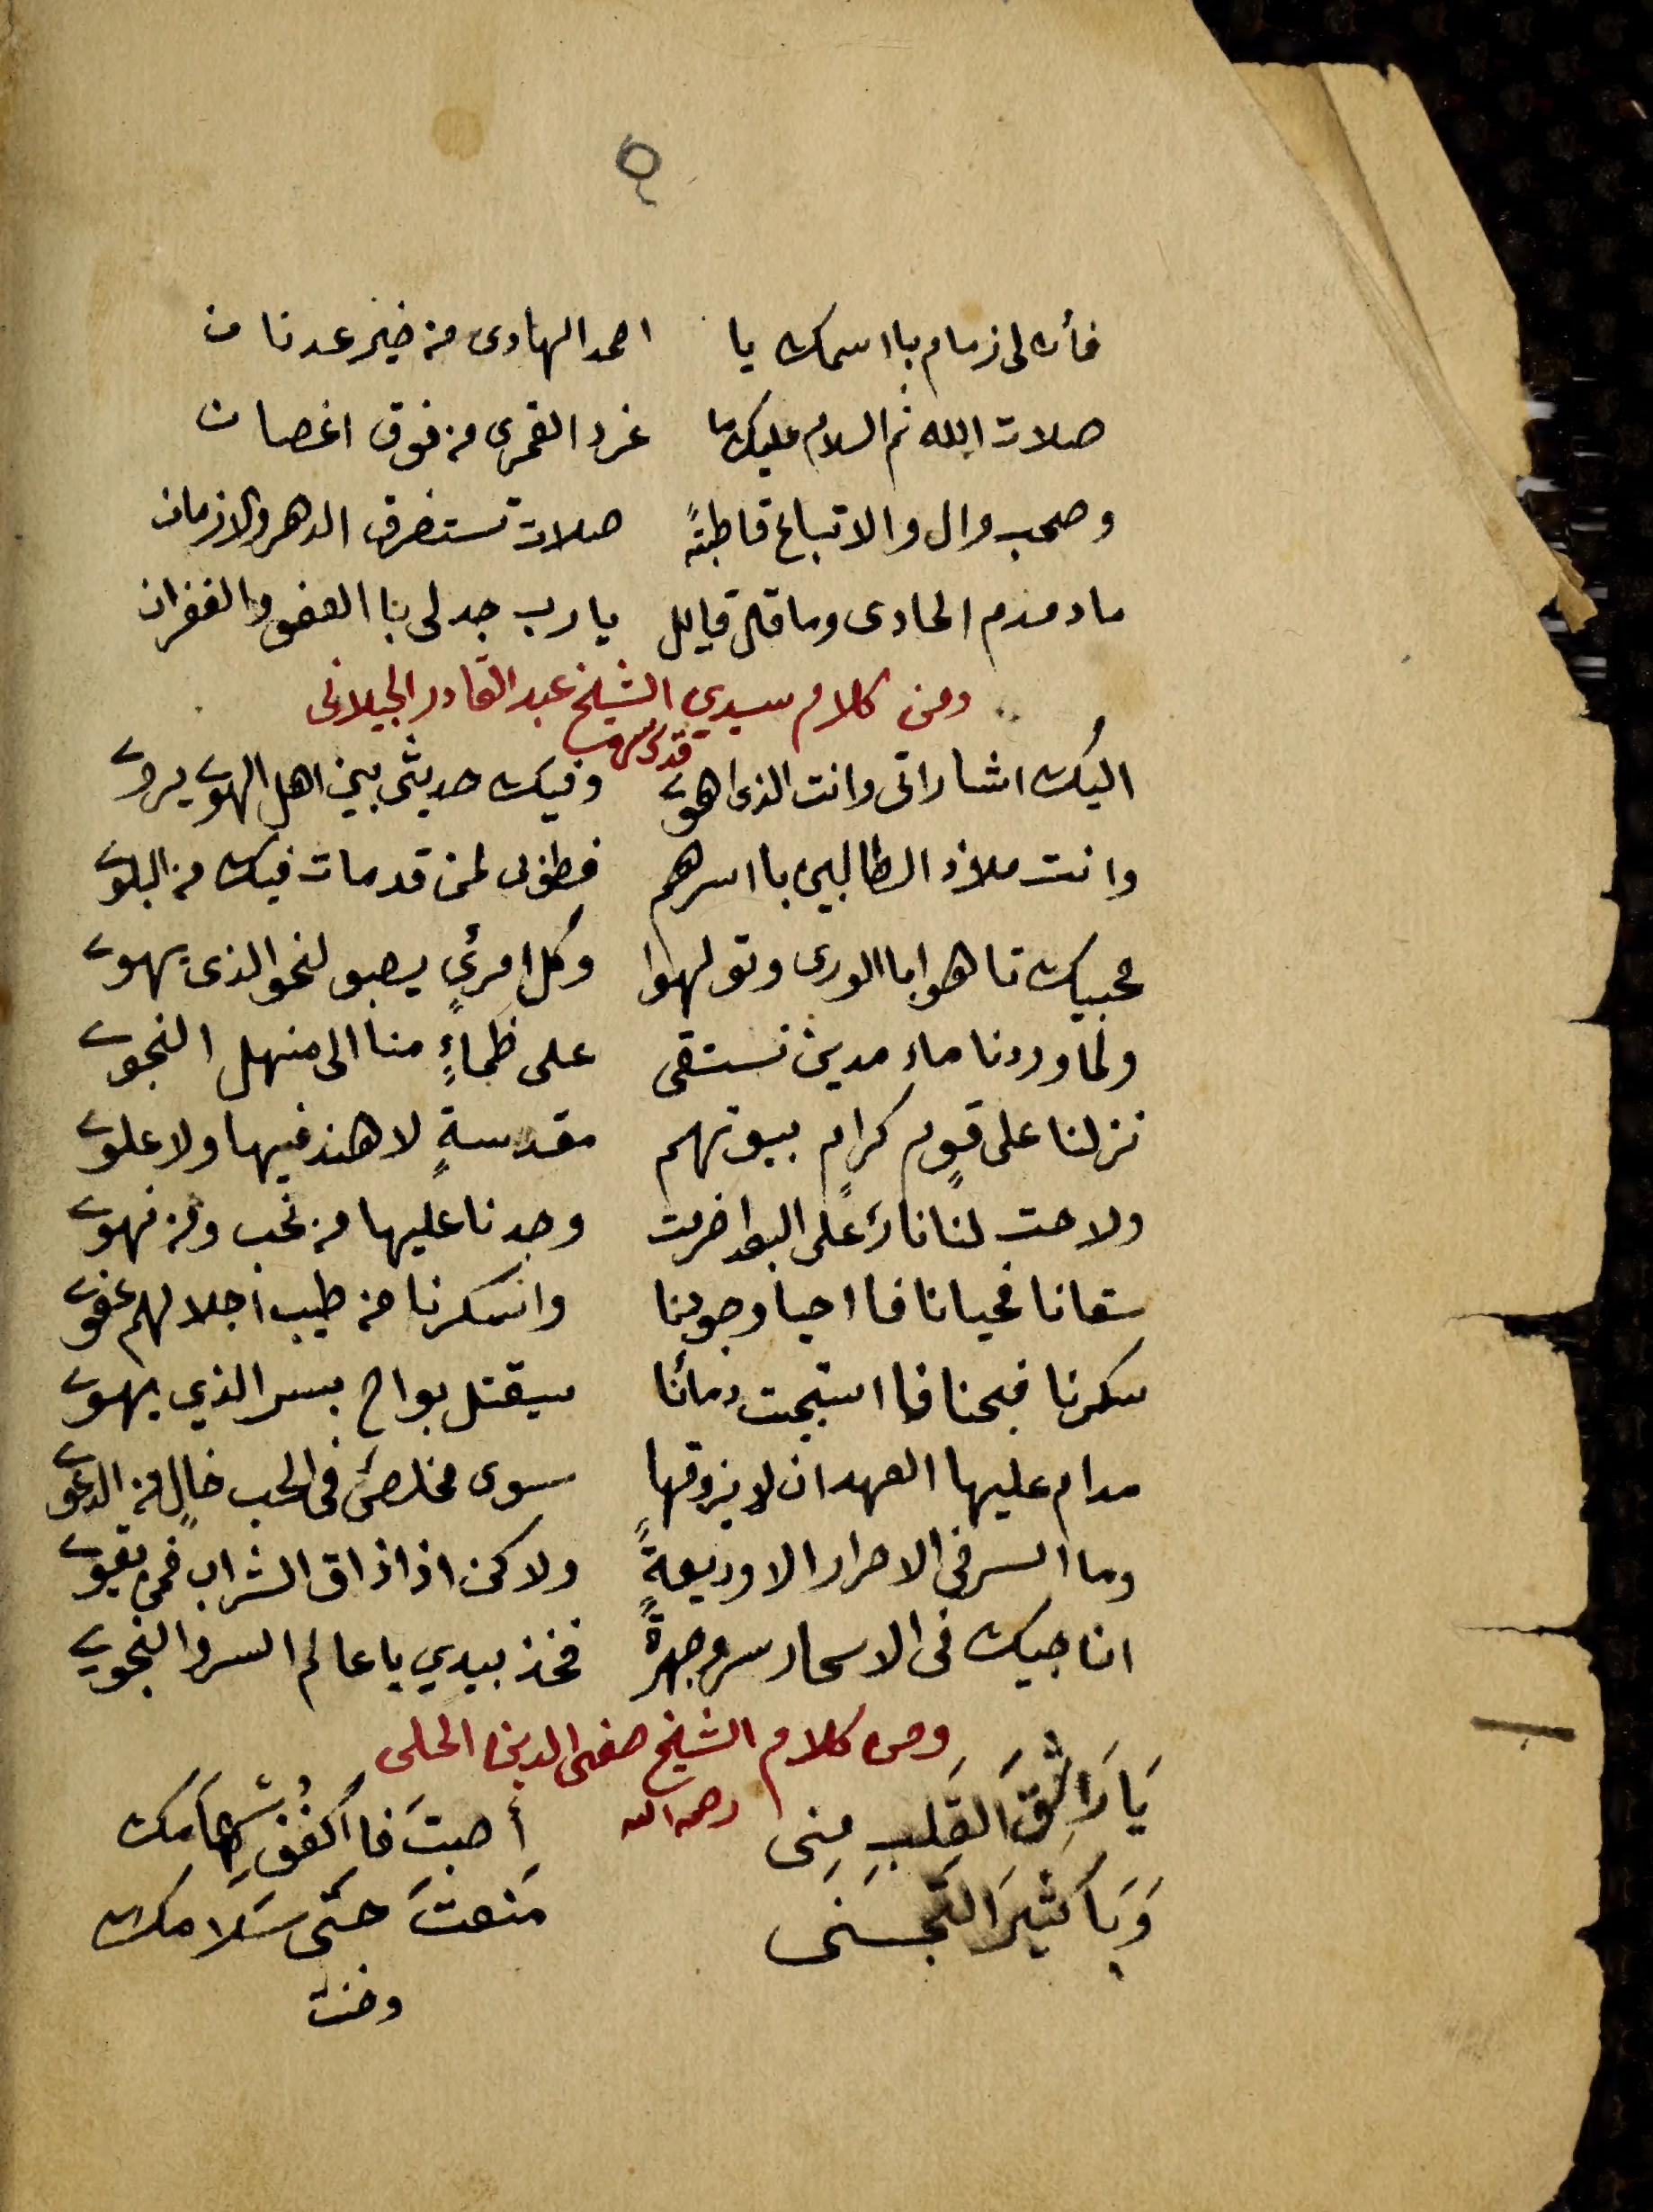 فأن لى زمام باسمك يا احمد الهادى من خير عدنان
صلات الله ثم السلام عليك ما غرد القمرى من فوق اغصان
وصحب وال والاتباع قاطبتً صلات تستغرق الدهر والازمان
مادمدم الحادى وما قال قايل يارب جد لى بالعفو والغفران
ومن كلام سيدي الشيخ عبد القادر الجيلانى
قدس سره
اليك اشاراتى وانت الذى اهوى وفيك حديثى بين اهل الهوى يروى
وانت ملاذ الطالبين بااسرهم فطوبى لمن قد مات فيك من البلوى
محبيك تاهوا باالورى وتولهوا وكل امرئٍ يصبو لنحو الذى يهوى
ولما وردنا ماء مدين نستقى على ظماءٍ منا الى منهل النجوى
نزلنا على قومٍ كرامٍ بيوتهم مقدسةٍ لا هند فيها ولا علوى
ولاحت لنا نار على البعد اضرمت وجدنا عليها من نحب ومن نهوى
سقانا فحيانا فااحيا وجودنا واسكرنا من طيب اجلالهم عفوى
سكرنا فبحنا فااستبيحت دمائنا سيقتل بواح بسر الذي يهوى
مدام عليها العهد ان لا يزوقها سوى مخلصٍ فى الحب خالٍ من الدعوى
وما السر فى الاحرار الا وديعةً ولاكن اذا ذاق الشراب فمن يقوى
اناجيك فى الاسحار سر وجهرةً فخذ بيدي يا عالم السر والنجوى
ومن كلام الشيخ صفى الدين الحلى
رحمه الله
يَا رَاشِقَ القَلبِ مِنِى أَصبتَ فا اكفُف سِهَامَك
وَيَا كَثيرَ التَجَنى مَنعتَ حَتَى سَلامَك
وخنت